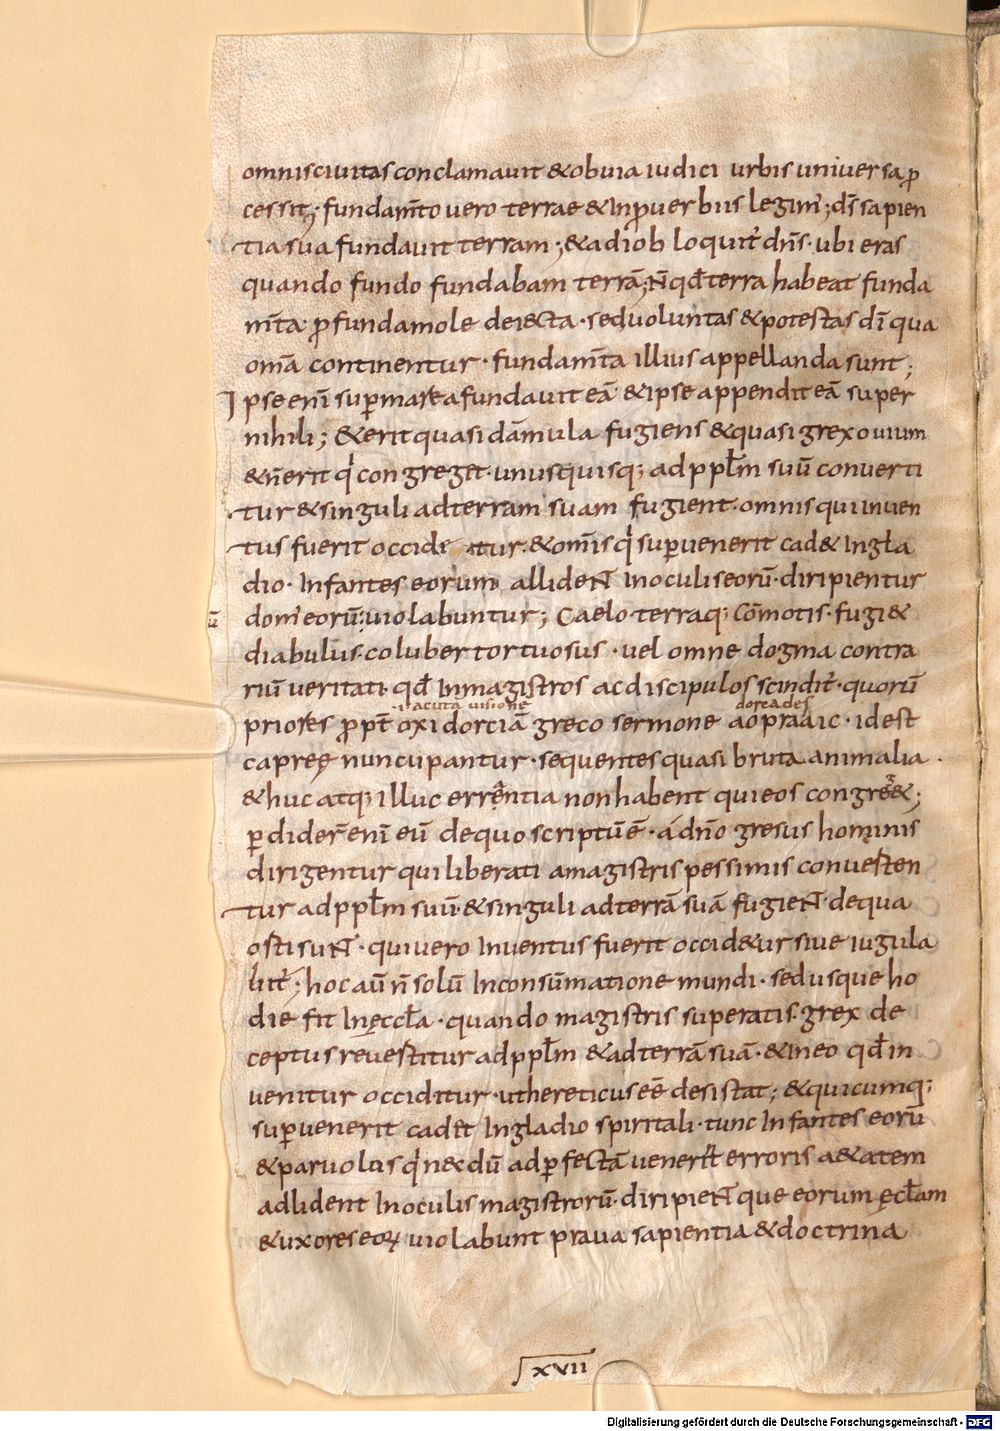 omnis civitas conclamavit & obvia iudici urbis universa p̄
cessit; fundam̄to vero terrae & In ꝓverbiis legim'; dŝ sapien
tia sua fundavit terram; & ad iob loquit̄ dn̄s · ubi eras
quando fundo fundabam terrā; N̄ qđ terra habeat funda
m̄ta ꝓ funda mole dei&cta · sed voluntas & potestas dī qua
om̄a continentur · fundam̄ta illius appellanda sunt;
Ipse enī sup̄ marea fundavit eā & ipse appendit eā super
nihili; & erit quasi dāmula fugiens & quasi grex ovium
& n̄ erit q' congreget · unusquisq; ad pp̄lm suū converti
tur & singuli ad terram suam fugient · omnis qui inven
tus fuerit occidetur · & om̄is q' sup̄venerit cad& In gla
dio · Infantes eorum allident In oculis eorū · diripientur
dom' eorū violabuntur; Caelo terraq; cōmotis · fugi&
ū
diabulus · coluber tortuosus · vel omne dogma contra
riū veritati · qđ In magistros ac discipulos scindit̄ · quorū
· i · acuta visione dorcades
priores ꝓpt̄ oxidorciā greco sermone aopraaic · id est
capreę nuncupantur · sequentes quasi bruta animalia ·
& huc atq; illuc errantia non habent qui eos congreg&;
ꝑdider̄ enī eū de quo scriptū ē · á dn̄o gresus hominis
dirigentur qui liberati a magistris pessimis converten
tur ad pp̄lm suū · & singuli ad terrā suā fugient · de qua
osti sunt · qui vero Inventus fuerit occid&ur sive iugula
bit̄; hoc aū n̄ solū In consūmatione mundi · sed usque ho
die fit In ęccła · quando magistris superatis · grex de
ceptus revestitur ad pp̄lm & ad terrā suā · & In eo qđ in
venitur occiditur · ut hereticus eē desistat; & quicumq;
sup̄venerit cadet In gladio spiritali · tunc Infantes eorū
& parvolos q' necdū ad ꝑfectā venerint erroris a&atem
adlident In oculis magistrorū · diripient que eorum ęcłam
& uxores eoꝝ violabunt prava sapientia & doctrina
XVII
Digitalisierung gefördert durch die Deutsche Forschungsgemeinschaft - DFG